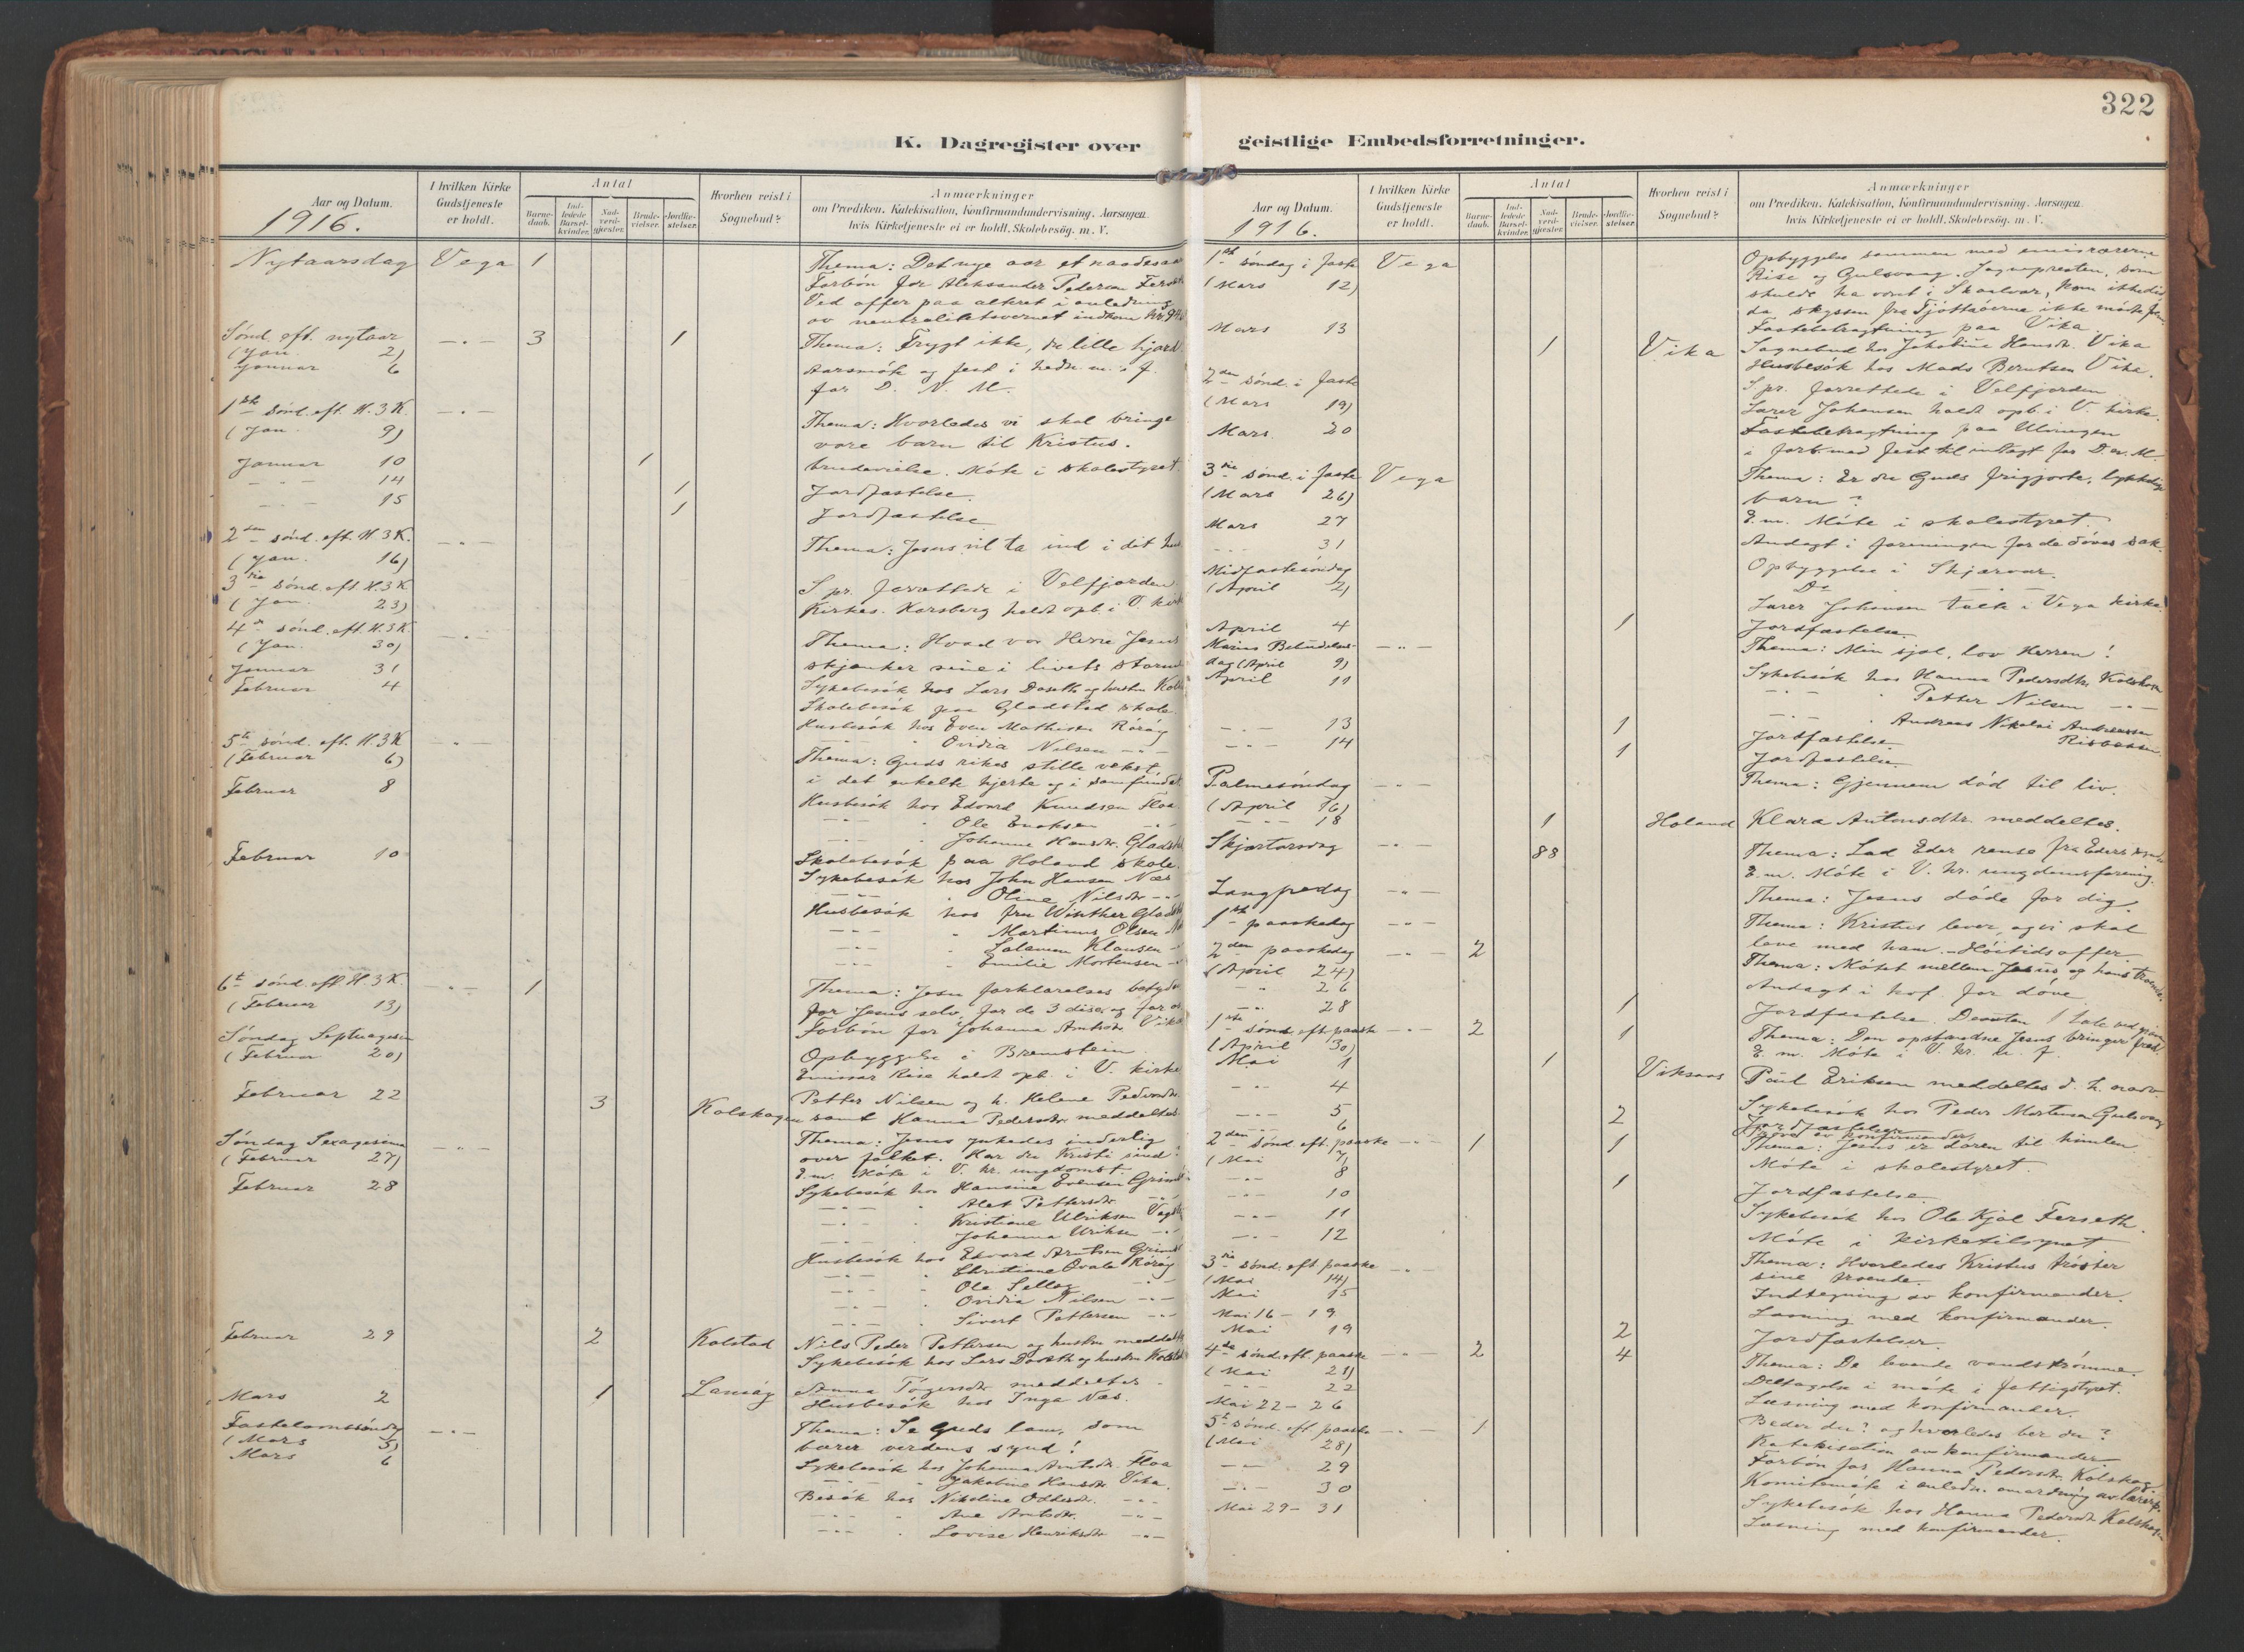 322
K. Dagregister over
Aar og Datum.
1916.
I hvilken Kirke
Gudstjeneste
er holdt.
Antal
Barne-
daab.
Ind-
ledede
Barsel-
kvinder.
Nad-
verd-
gjester.
Brude-
vielser.
Jordfæ-
stelser.
Hvorhen reist i
Sognebud?
Anmærkninger
om Prædiken, Katekisation, Konfirmandundervisning, Aarsagen
hvis Kirketjeneste ei er holdt, Skolebesög. m. V.
Nytaarsdag Vega 1 Thema: Det nye aar et naadesaar
Forbön for Aleksander Pedersen Ferseth
Ved offer paa alteret i anledning
av neutralitetsvernet indkom kr.
Sönd. eft. nytaar 3 1 Thema: Frygt ikke, du lille hjord.
(Jan. 2)
Januar 6 Aarsmöte og fest i
for D. N. M.
1ste sönd. eft. H. 3 K.
(Jan. 9) Thema: Hvorledes vi skal bringe
vore barn til Kristus.
Januar 10 1 Brudevielse. Möte i skolestyret.
14 1 Jordfæstelse.
15 1 Jordfæstelse
2den sönd. eft. H. 3 K.
(Jan. 16) Thema: Jesus vil ta ind i dit
3die sönd. eft. H. 3 K
(Jan. 23) S. pr. forrettede i Velfjorden.
Kirkes. Karsberg holdt opb. i V. kirke
4de sönd. eft. H. 3 K.
(Jan. 30) Thema: Hvad vor Herre Jesus
skjænker sine i livets storme
Januar 31 Sykebesök hos Lars Doseth og hustru
Februar 4 Skolebesök paa Gladstad skole
Husbesök hos Even Mathisen Röröy
Ovidia Nilsen
5te sönd. eft. H. 3 K
(Februar 6) Thema: Guds rikes stille vekst
i det enkelte hjerte og i samfundet.
Februar 8 Husbesök hos Edvard Knudsen Floa
Ole Enoksen
Johanne Hansdtr. Gladstad
Februar 10 Skolebesök paa Holand skole.
Sykebesök hos John Hansen Næs
Oline Nilsdtr.
Husbesök hos fru Winther Gladstad
Martinus Olsen
Salamon Klausen
Emilie Mortensen
6te sönd. eft. H. 3 K. 1 Thema: Jesu forklarelses betydn.
(Februar 13) for Jesus selv, for de 3 disc. og for os
Forbön for Johanna Arntsdtr. Vika
Söndag Septuagesima
(Februar 20) Opbyggelse i Bremstein
Emissær Rise holdt opb. i V. kirke
Februar 22 3 Kolskogen Petter Nilsen og h. Helene Pedersdtr.
samt Hanna Pedersdtr. meddeltes.
Söndag Sexagesima Thema: Jesus ynkedes inderlig
(Februar 27) over folket. Har du Kristi sind?
E.m. Möte i V. kr. ungdomsf.
Februar 28 Sykebesök hos Hansine Evensen
Alet Pettersdtr.
Kristiane Ulriksen
Johanna Ulriksen
Husbesök hos Edvard Arntsen
Christiane Ovale Röröy
Ole
Ovidia Nilsen
Sivert Pettersen
Februar 29 2 Kolstad Nils Peder Pettersen og hustru meddeltes
Sykebesök hos Lars Doseth og hustru Kolstad
Mars 2 1 Lansöy Anna meddeltes
Husbesök hos Inga Næs.
Fastelavnssöndag Thema: Se Guds lam, som
(Mars 5) bærer verdens synd!
Mars 6 Sykebesök hos Johanna Arntsdtr. Floa
Jakobine Hansdtr. Vika.
Besök hos Nikoline
Ane Arntsdtr.
Lovise Henriksdtr.
geistlige Embedsforretninger.
Aar og Datum.
1916.
I hvilken Kirke
Gudstjeneste
er holdt.
Antal
Barne-
daab.
Ind-
ledede
Barsel-
kvinder.
Nad-
verd-
gjester.
Brude-
vielser.
Jordfæ-
stelser.
Hvorhen reist i
Sognebud?
Anmærkninger
om Prædiken, Katekisation, Konfirmandundervisning, Aarsagen
hvis Kirketjeneste ei er holdt, Skolebesög. m. V.
1ste söndag i faste Vega Opbyggelse sammen med emissærerne
(Mars 12) Rise og Gulsvaag. Sognepresten, som
skulde ha været i Skaalvær, kom ikke
da skyssen fra Tjöttaöerne ikke mötte frem.
Mars 13 Fastebetragtning paa Vika.
1 Vika Sognebud hos Jakobine Hansdtr. Vika
Husbesök hos Mads Berntsen Vika.
2den sönd. i faste S. pr. forrettede i Velfjorden
(Mars 19) Lærer Johansen holdt opb. i V. kirke.
Mars 20 Fastebetragtning paa Ulvingen
i forb. med fest til indtægt for D. N. M.
3die sönd. i faste Vega Thema: Er du Guds frigjorte, lykkelige
(Mars 26) barn?
Mars 27 E.m. Möte i skolestyret.
31 Andagt i foreningen for de döves sak.
Midfastesöndag Opbyggelse i Skjærvær.
(April 2) Do
Lærer Johansen talte i Vega kirke.
April 4 1 Jordfæstelse.
Mariæ Budskaps-
dag (April 9) Thema: Min sjæl, lov Herren!
April 11 Sykebesök hos Hanna Pedersdtr. Kolskogen
Petter Nilsen
Andreas Nikolai Andreassen
13 1 Jordfæstelse.
14 1 Jordfæstelse.
Palmesöndag Thema: Gjennem död til liv.
(April 16)
18 1 Holand Klara Antonsdtr. meddeltes.
Skjærtorsdag 88 Thema: Lad Eder rense fra Eders synder
E.m. Möte i V. kr. ungdomsforening.
Langfredag Thema: Jesus döde for dig.
1ste paaskedag Thema: Kristus lever, og vi skal
leve med ham. Höitidsoffer.
2den paaskedag 2 Thema: Mötet mellem Jesus og hans
(April 24)
26 Andagt i hof. for döve
28 1 Jordfæstelse.
1ste sönd. eft. paaske 2 1 Thema: Den opstandne Jesus bringer fred.
(April 30) E.m. Möte i V. kr. u. f.
Mai 1 1 Viksaas Paul Eriksen meddeltes d. h. nadv.
4 Sykebesök hos Peder Mortensen Gulsvaag
5 2 Jordfæstelser
6 Pröve av konfirmander
2den sönd. eft. paaske 1 1 Thema: Jesus er dören til himlen.
(Mai 7)
8 Möte i skolestyret.
10 1 Jordfæstelse.
11 Sykebesök hos Ole Kjöl Ferseth.
12 Möte i kirketilsynet
3die sönd. eft. paaske Thema: Hvorledes Kristus tröster
(Mai 14) sine troende.
Mai 15 Indtegning av konfirmander.
Mai 16 - 19 Læsning med konfirmander.
Mai 19 2 Jordfæstelser.
4de sönd. eft. paaske 2 4 Thema: De levende vandströmme.
(Mai 21)
22 Deltagelse i möte i fattigstyret.
Mai 22 - 26 Læsning med konfirmander.
5te sönd. eft. paaske 1 Beder du? og hvorledes ber du?
(Mai 28) Katekisation av konfirmander
Forbön for Hanna Pedersdtr. Kolskog
29 Komitemöte i anledn. omordning av
30 Sykebesök hos Hanna Pedersdtr. Kolskogen
Mai 29 - 31 Læsning med konfirmander.